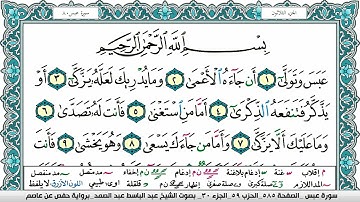 سورة عبس ٨٠
الجزء الثلاثون
بِسْمِ اللَّهِ الرَّحْمَٰنِ الرَّحِيمِ
عَبَسَ وَتَوَلَّىٰ ١ أَن جَاءَهُ الْأَعْمَىٰ ٢ وَمَا يُدْرِيكَ لَعَلَّهُ يَزَّكَّىٰ ٣ أَوْ
يَذَّكَّرُ فَتَنفَعَهُ الذِّكْرَىٰ ٤ أَمَّا مَنِ اسْتَغْنَىٰ ٥ فَأَنتَ لَهُ تَصَدَّىٰ ٦
وَمَا عَلَيْكَ أَلَّا يَزَّكَّىٰ ٧ وَأَمَّا مَن جَاءَكَ يَسْعَىٰ ٨ وَهُوَ يَخْشَىٰ ٩ فَأَنتَ
سورة عبس الصفحة ٥٨٥ الحزب ٥٩ الجزء ٣٠ بصوت الشيخ عبد الباسط عبد الصمد برواية حفص عن عاصم